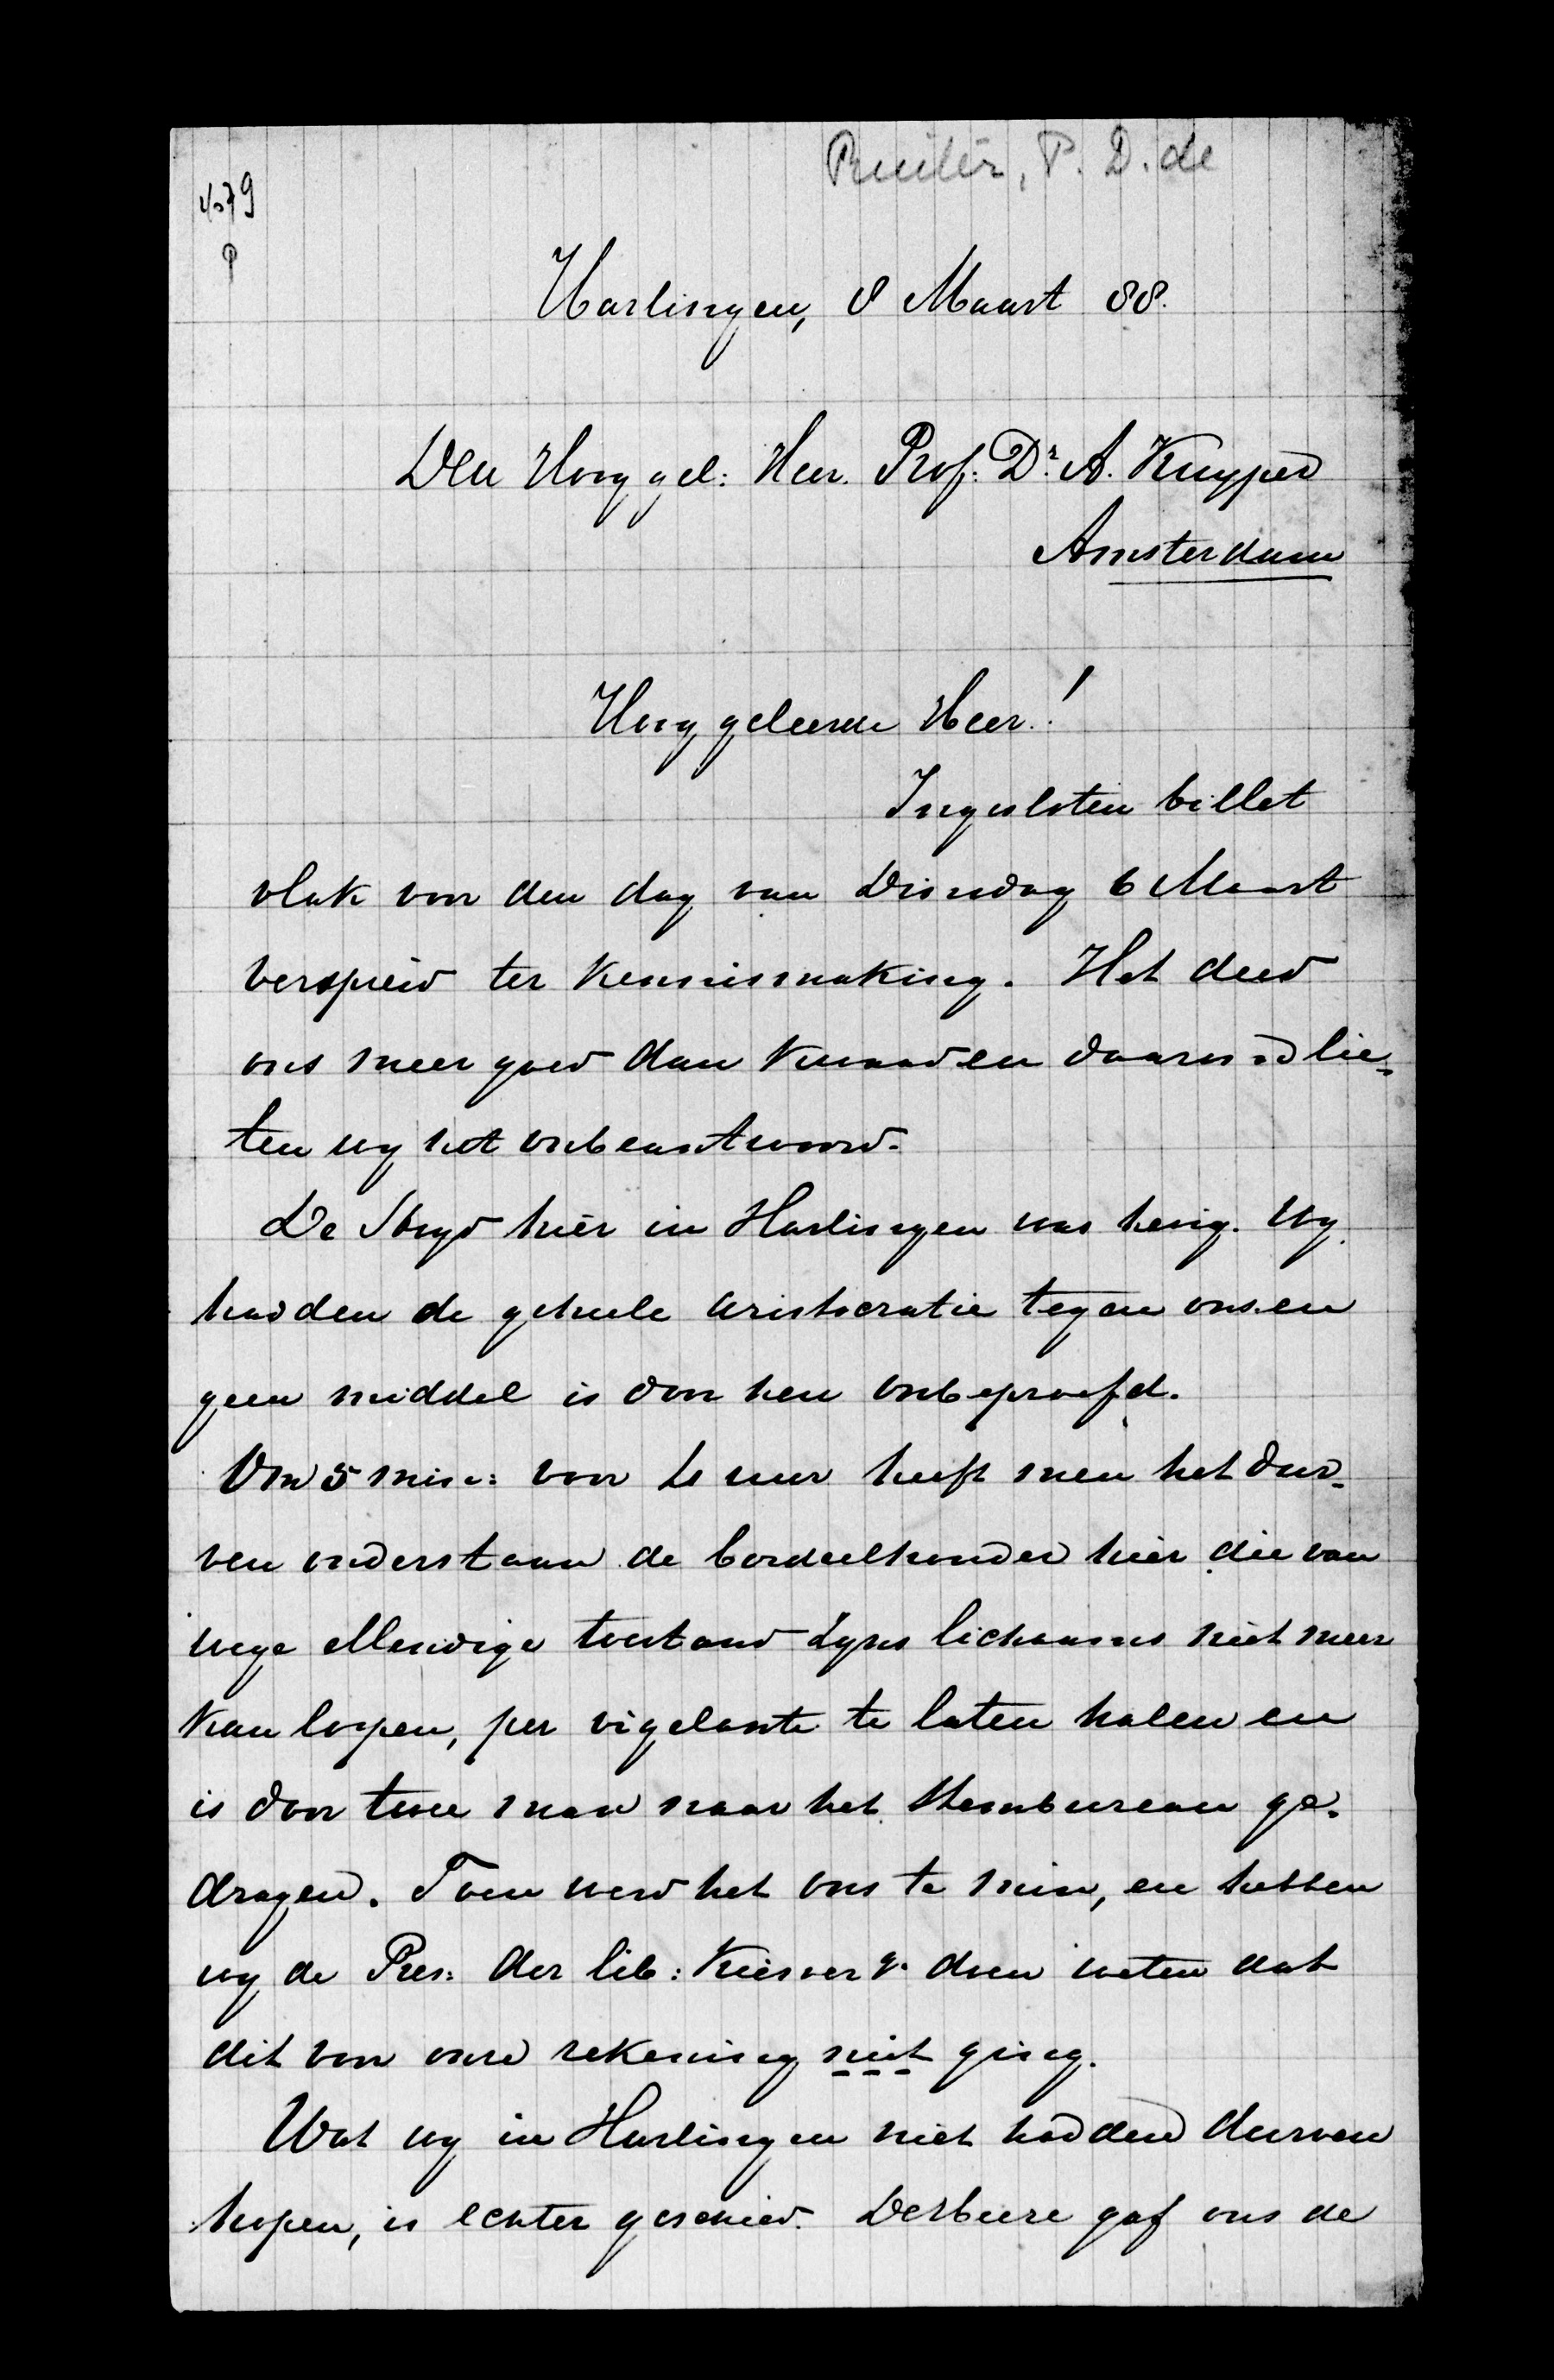 Ruiter, P. D. de
4079
P
Harlingen, 8 Maart 88.
Den Hooggel: Heer. Prof: Dr. A. Kuyper
Amsterdam
Hooggeleerde Heer!
Ingesloten billet
vlak voor den dag van Dinsdag 6 Maart
verspreid ter kennismaking. Het deed
ons meer goed dan kwaad en daarom lie-
ten wy het onbeantwoord.
De Stryd hier in Harlingen was hevig. Wy
hadden de geheele aristocratie tegen ons en
geen middel is door hen onbeproefd.
Om 5 min: voor 4 uur heeft men het dur-
ven onderstaan de bordeelhouder hier die van
wege ellendige toestand zyns lichaams niet meer
kan loopen, per vigelante te laten halen en
is door twee man naar het stembureau ge-
dragen. Toen werd het ons te min, en hebben
wy de Pres: der lib: Kiesver g. doen weten dat
dit voor onze rekening niet ging.
Wat wy in Harlingen niet hadden durven
hopen, is echter geschied. De Heere gaf ons de